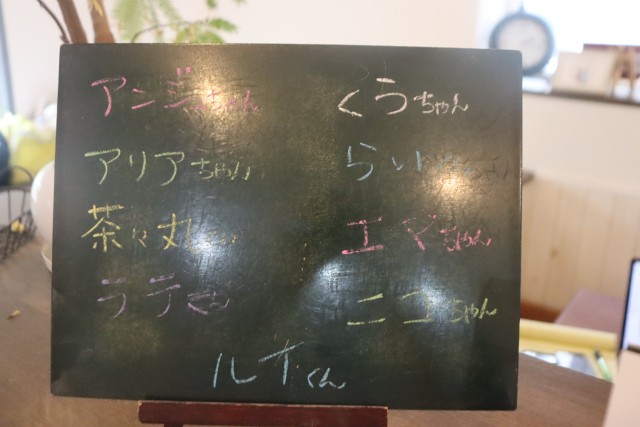 アンジーちゃん
アリアちゃん
茶々丸くん
ララくん
くうちゃん
らい
エマちゃん
ニコちゃん
ルイくん